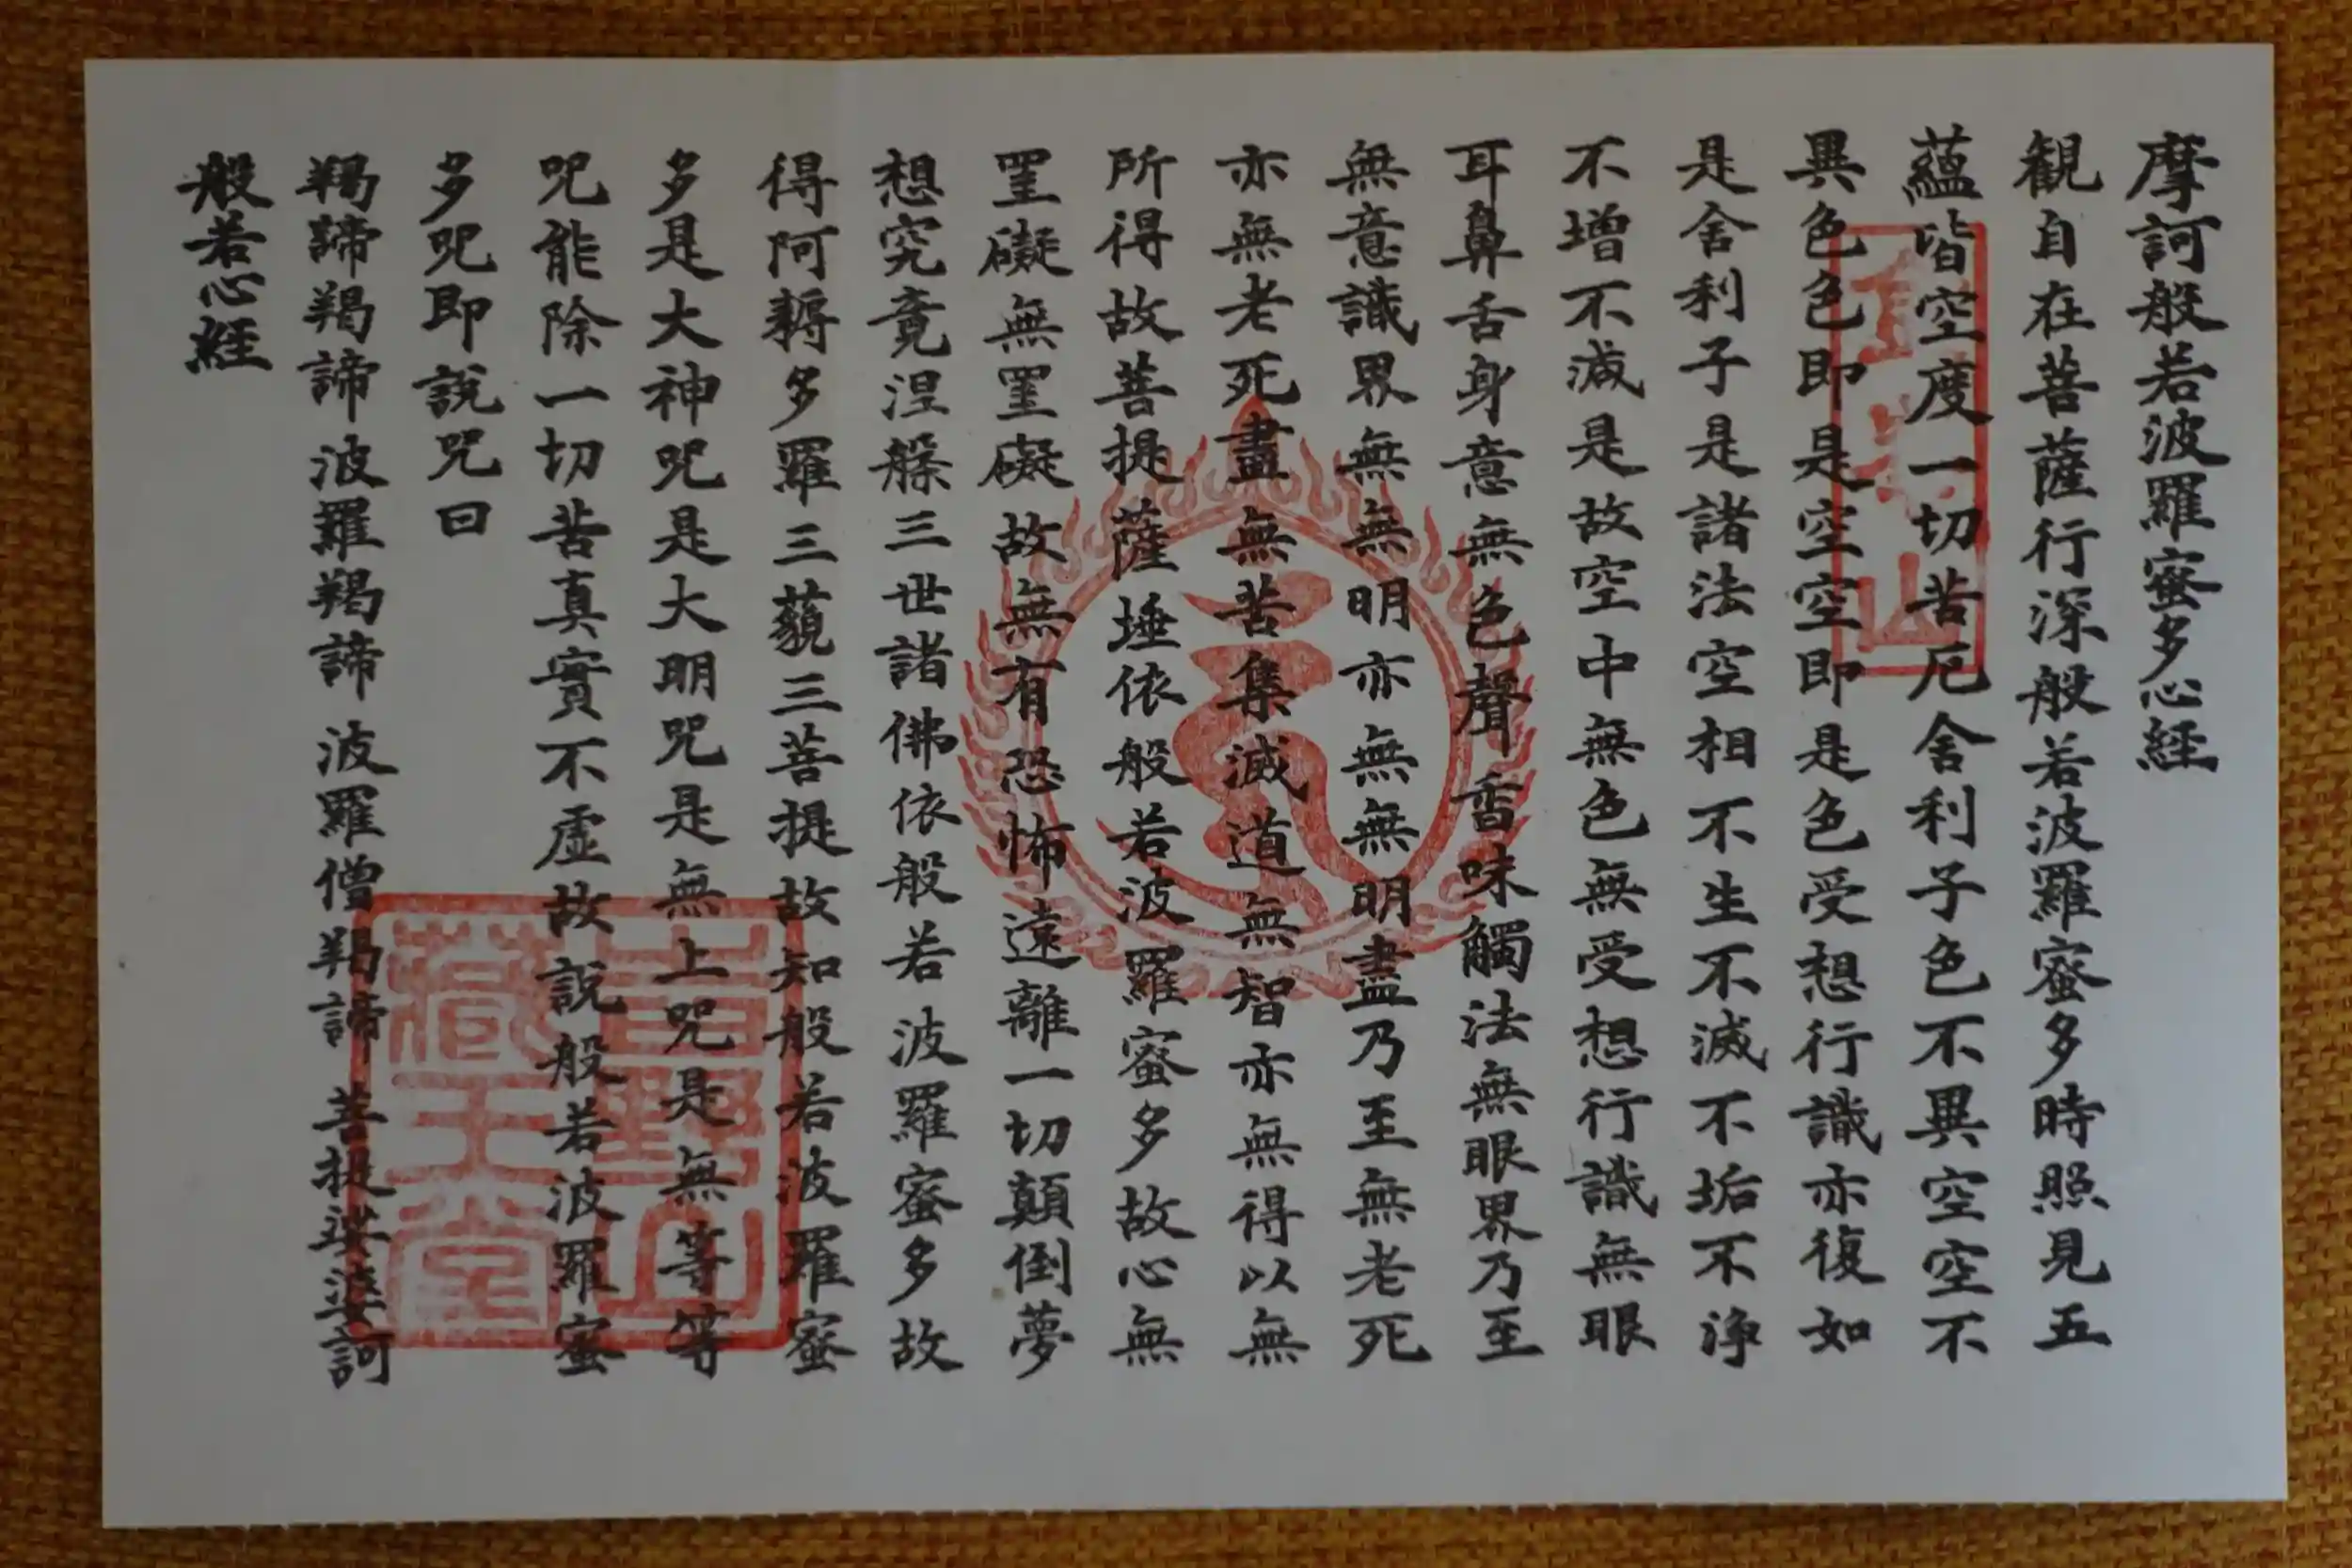 摩訶般若波羅蜜多心経
観自在菩薩行深般若波羅蜜多時照見五
蘊皆空度一切苦厄舍利子色不異空空不
異色色即是空空即是色受想行識亦復如
是舍利子是諸法空相不生不滅不垢不浄
不增不減是故空中無色無受想行識無眼
耳鼻舌身意無色聲香味觸法無眼界乃至
無意識界無無明亦無無明盡乃至無老死
亦無老死盡無苦集滅道無智亦無得以無
所得故菩提薩埵依般若波羅蜜多故心無
罣礙無罣礙故無有恐怖遠離一切顛倒夢
想究竟涅槃三世諸佛依般若波羅蜜多故
得阿耨多羅三藐三菩提故知般若波羅蜜
多是大神咒是大明咒是無上咒是無等等
咒能除一切苦真實不虛故説般若波羅蜜
多咒即説咒曰
羯諦羯諦波羅羯諦波羅僧羯諦菩提娑婆訶
般若心経
吉野山
藏王堂